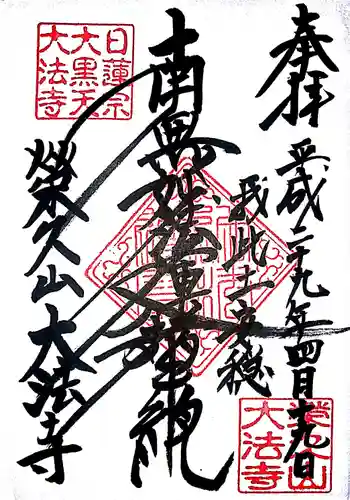 奉拝
平成二十九年四月十九日
我此土安穏
南無妙法蓮華経
日蓮宗
大黒天
大法寺
榮久山大法寺
大法寺